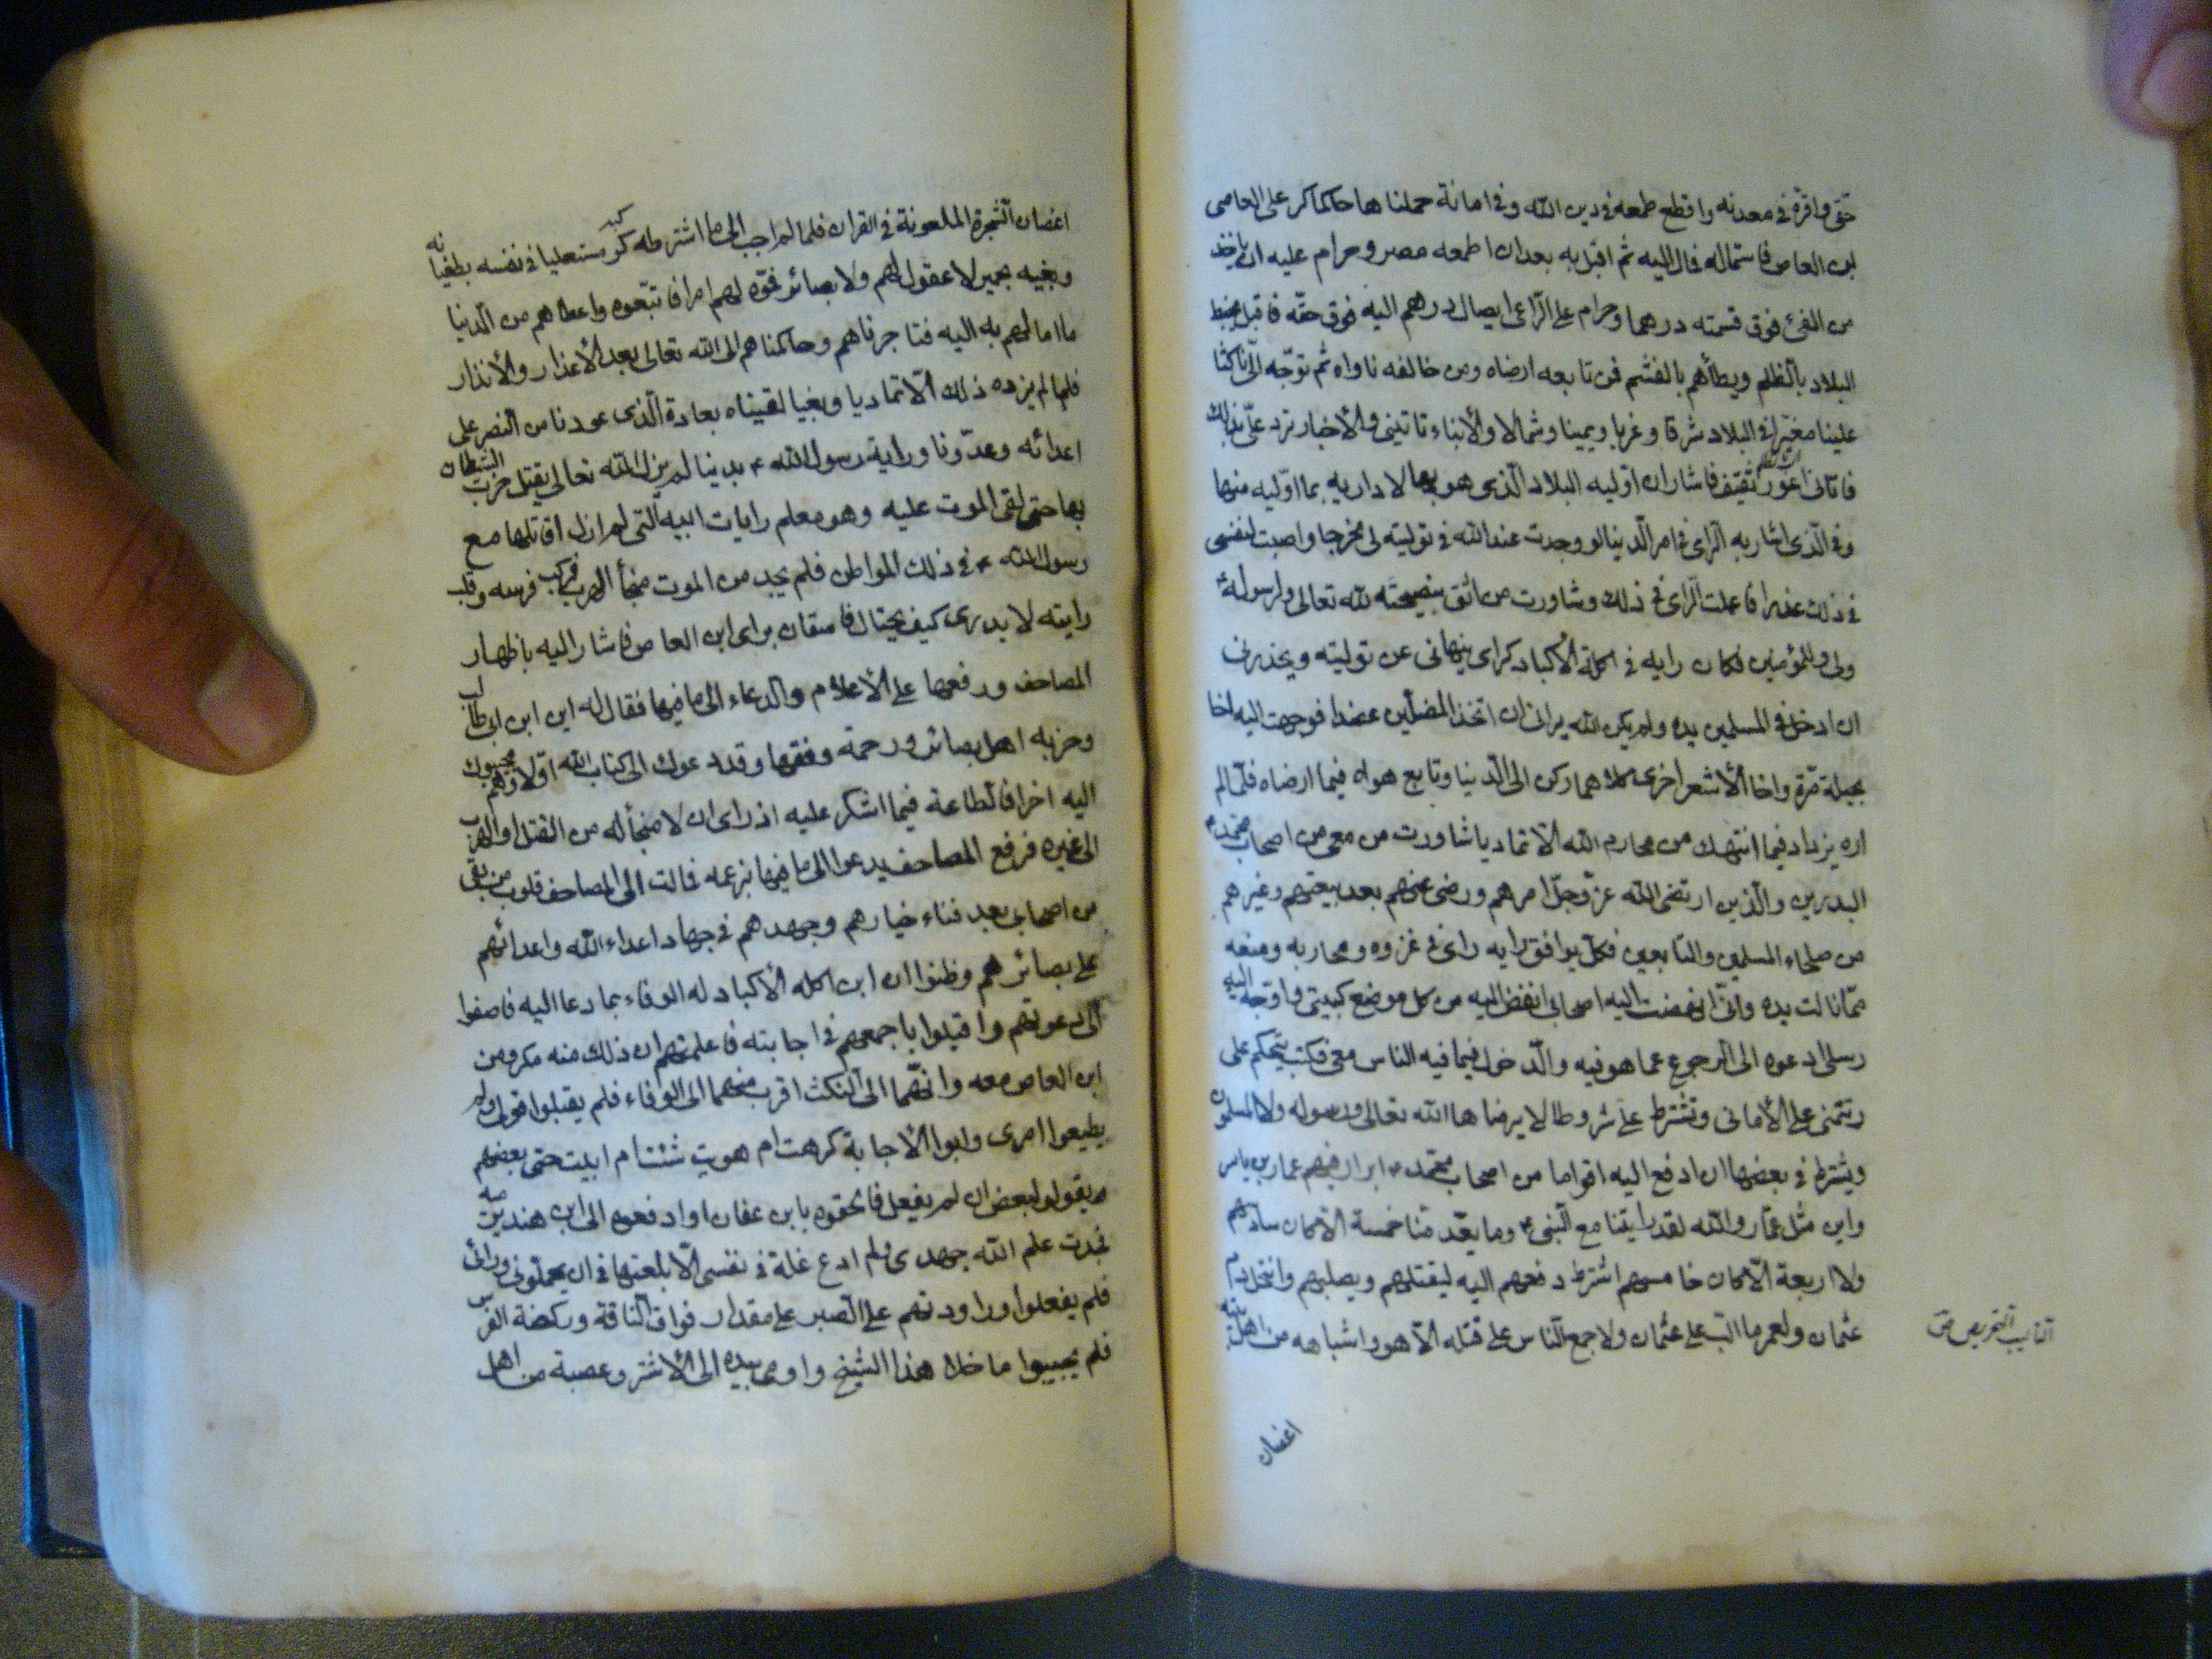 حتى واقرّه في معدنه واقطع طمعه في دين الله وفي امانة حملناها حاكما كر على العاصى
ابن العاص فاستماله فمال اليه ثم اقبل به بعد ان اطعمه مصر وحرام عليه ان ياخذ
من الفئ فوق قسمته درهما وحرام على الرّاعى ايصال درهم اليه فوق حقّه فاقبل يخبط
البلاد بالظلم ويطأهم بالغشم فمن تابعه ارضاه ومن خالفه ناواه ثم توجّه الىّ ناكثا
علينا مغيّرا في البلاد شرقا وغربا ويمينا وشمالا والأنباء تاتينى والأخبار ترد علىّ بذلك
فاتانى اعور ثقيف فاشار ان اوليه البلاد الّذى هو بها لاداريه بما اوّليه منها
وفي الّذى اشار به الراى في امر الدنيا لو وجدت عند الله في توليته لى مخرجا واصبت لنفسى
في ذلك عذرا فاعملت الرّاى في ذلك وشاورت من اثق بنصيحته لله تعالى ولرسوله
ولى وللمؤمنين فكان رايه في اكلة الأكباد كراى ينهانى عن توليته ويحذرنى
ان ادخل في المسلمين يده ولم يكن الله يرانى ان اتخذ المضلّين عضدا فوجهت اليه اخا
بجيلة مرّة واخا الأشعر اخرى كلاهما ركن الى الدنيا وتابع هواه فيما ارضاه فلمّا لم
اره يزداد فيما انتهك من محارم الله الّا تماديا شاورت من معى من اصحاب محمّد
البدريين والّذين ارتضى الله عزّ وجلّ امرهم ورضى عنهم بعد بيعتهم وغيرهم
من صلحاء المسلمين والتابعين فكلّ يوافق رايه راى في غزوه ومحاربه ومنعه
ممّا نالت يده وانّى نهضت اليه اصحابى انفذ اليه من كل موضع كتبى واوّجه اليه
رسلى ادعوه الى الرجوع عما هو فيه والّدخول فيما فيه الناس معى فكتب يتحكم على
ويتمنى على الأمانى وتشترط علىّ شروطا لا يرضاها الله تعالى ورسوله ولا المسلمون
ويشترط في بعضها ان ادفع اليه اقواما من اصحاب محمّد ابرارا فيهم عمار بن ياسر
واين مثل عمّار والله لقد رايتنا مع النبى وما يعّد منّا خمسة الّا كان سادسهم
ولا اربعة الّا كان خامسهم اشترط دفعهم اليه ليقتلهم ويصلبهم وانتحل دم
عثمان ولعمر ما الّب على عثمان ولا جمع النّاس على قتله الّا هو واشباهه من اهل بيته
التاليب التحريص
اغصان
اغصان الشجرة الملعونة في القران فلما لم اجب الى ما اشترطه كر مستعليا في نفسه بطغيانه
وبغيه بحمير لا عقول لهم ولا بصائر فموّه لهم امرا فاتبّعوه واعطاهم من الدنيا
ما امالهم به اليه فناجزناهم وحاكمناهم الى الله تعالى بعد الأعذار والأنذار
فلما لم يزده ذلك الّا تماديا وبغيا لقيناه بعادة الّذى عودنا من النصر على
اعدائه وعدّونا وراية رسول الله بدينا لم يزل الله تعالى يقتل حزب الشيطان
بها حتى لقى الموت عليه وهو معلم رايات ابيه التى لم ازل اقاتلها مع
رسول الله في ذلك المواطن فلم يجد من الموت منجأ الا الهرب فركب فرسه وقلب
رايته لا يدرى كيف يحتال فاستعان براى ابن العاص فاشار اليه باظهار
المصاحف ورفعها على الأعلام والدعاء الى ما فيها فقال له اين ابن ابى طالب
وحزبه اهل بصائر ورحمة وفقها وقد دعوك الى كتاب الله اولا وهم مجيبوك
اليه اخرا فاطاعة فيما اشكر عليه اذ راى ان لا منجأ له من القتل او الهرب
الى غيره فرفع المصاحف يدعوا الى ما فيها بزعمه فمالت الى المصاحف قلوب من بقى
من اصحابى بعد فناء خيارهم وجهدهم في جهاد اعداء الله واعدائهم
على بصائرهم وظنوا ان ابن اكلة الأكباد له الوفاء بما دعا اليه فاصغوا
الى دعوتهم واقبلوا باجمعهم في اجابته فاعلمتهم ان ذلك منه مكر ومن
ابن العاص معه وانّهما الى النكث اقرب منهما الى الوفاء فلم يقبلوا قولى ولم
يطيعوا امرى وابوا الأجابة كرهت ام هويت شئت ام ابيت حتى بعضهم
يقول لبعض ان لم يفعل فالحقوه بابن عفان او ادفعوه الى ابن هند برمته
فجهدت علم الله جهدى ولم ادع غلة في نفسى الّا بلغتها في ان يخلونى ورائى
فلم يفعلوا وراودتهم على الصبر على مقدار فواق الناقة وركضة الفرس
فلم يجيبوا ما خلا هذا الشيخ واومى بيده الى الأشتر وعصبة من اهل